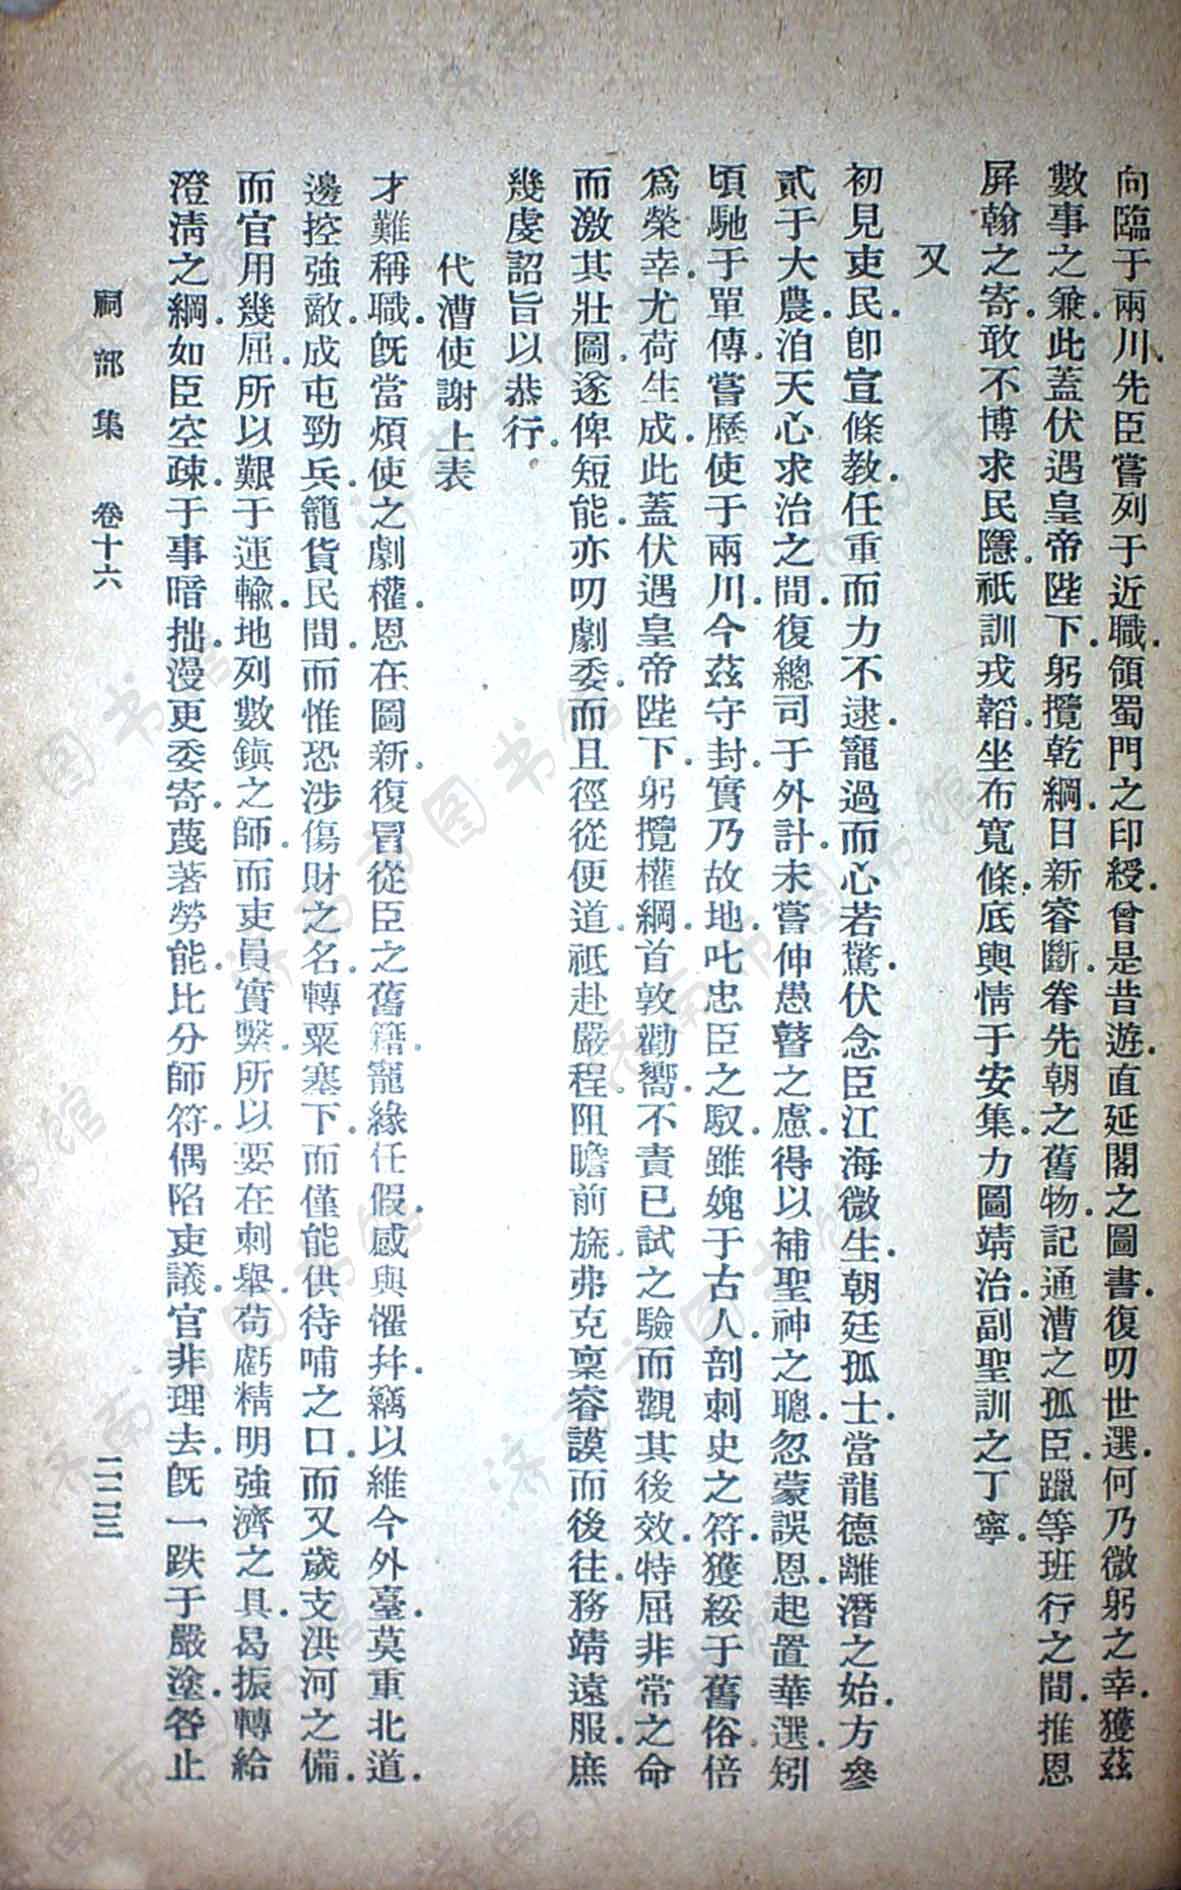 向臨于兩川先臣嘗列于近職領蜀門之印綬曾是昔遊直延閣之圖書復叨世選何乃微躬之幸獲茲
數事之兼此蓋伏遇皇帝陛下躬攬乾綱日新睿斷眷先朝之舊物記通漕之孤臣躐等班行之間推恩
屏翰之寄敢不博求民隱祇訓戎韜坐布寬條底輿情于安集力圖靖治副聖訓之丁寧
又
初見吏民卽宣條教任重而力不逮寵過而心若驚伏念臣江海微生朝廷孤士當龍德離潛之始方參
貳于大農洎天心求治之間復總司于外計未嘗伸愚瞽之慮得以補聖神之聰忽蒙誤恩起置華選矧
頃馳于單傳嘗歷使于兩川今茲守封實乃故地叱忠臣之馭雖媿于古人剖刺史之符獲綏于舊俗倍
爲榮幸尤荷生成此蓋伏遇皇帝陛下躬攬權綱首敦勸嚮不責已試之驗而觀其後效特屈非常之命
而激其壯圖遂俾短能亦叨劇委而且徑從便道祗赴嚴程阻瞻前旒弗克稟睿謨而後往務靖遠服庶
幾虔詔旨以恭行
代漕使謝上表
才難稱職旣當煩使之劇權恩在圖新復冒從臣之舊籍寵緣任假感與懼幷竊以維今外臺莫重北道
邊控強敵成屯勁兵籠貨民間而惟恐涉傷財之名轉粟塞下而僅能供待哺之口而又歲支洪河之備
而官用幾屈所以艱于運輸地列數鎮之師而吏員實繫所以要在刺舉苟虧精明強濟之具曷振轉給
澄清之綱如臣空疎于事暗拙漫更委寄蔑著勞能比分師符偶陷吏議官非理去旣一跌于嚴塗咎止
祠部集 卷十六 二二三
济南市图书馆